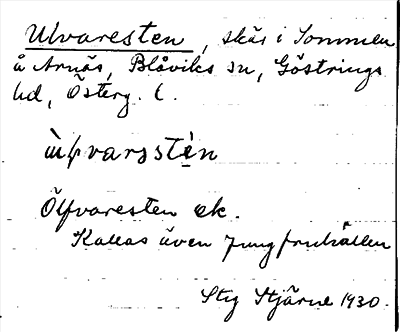 Ulvaresten, skär i Sommen
å Arnäs, Blåviks sn, Göstrings
hd, Österg. l.
ùlvarsstèn
Ölfvaresten ek.
Kallas även Jungfruhällen
Stig Stjärne 1930.